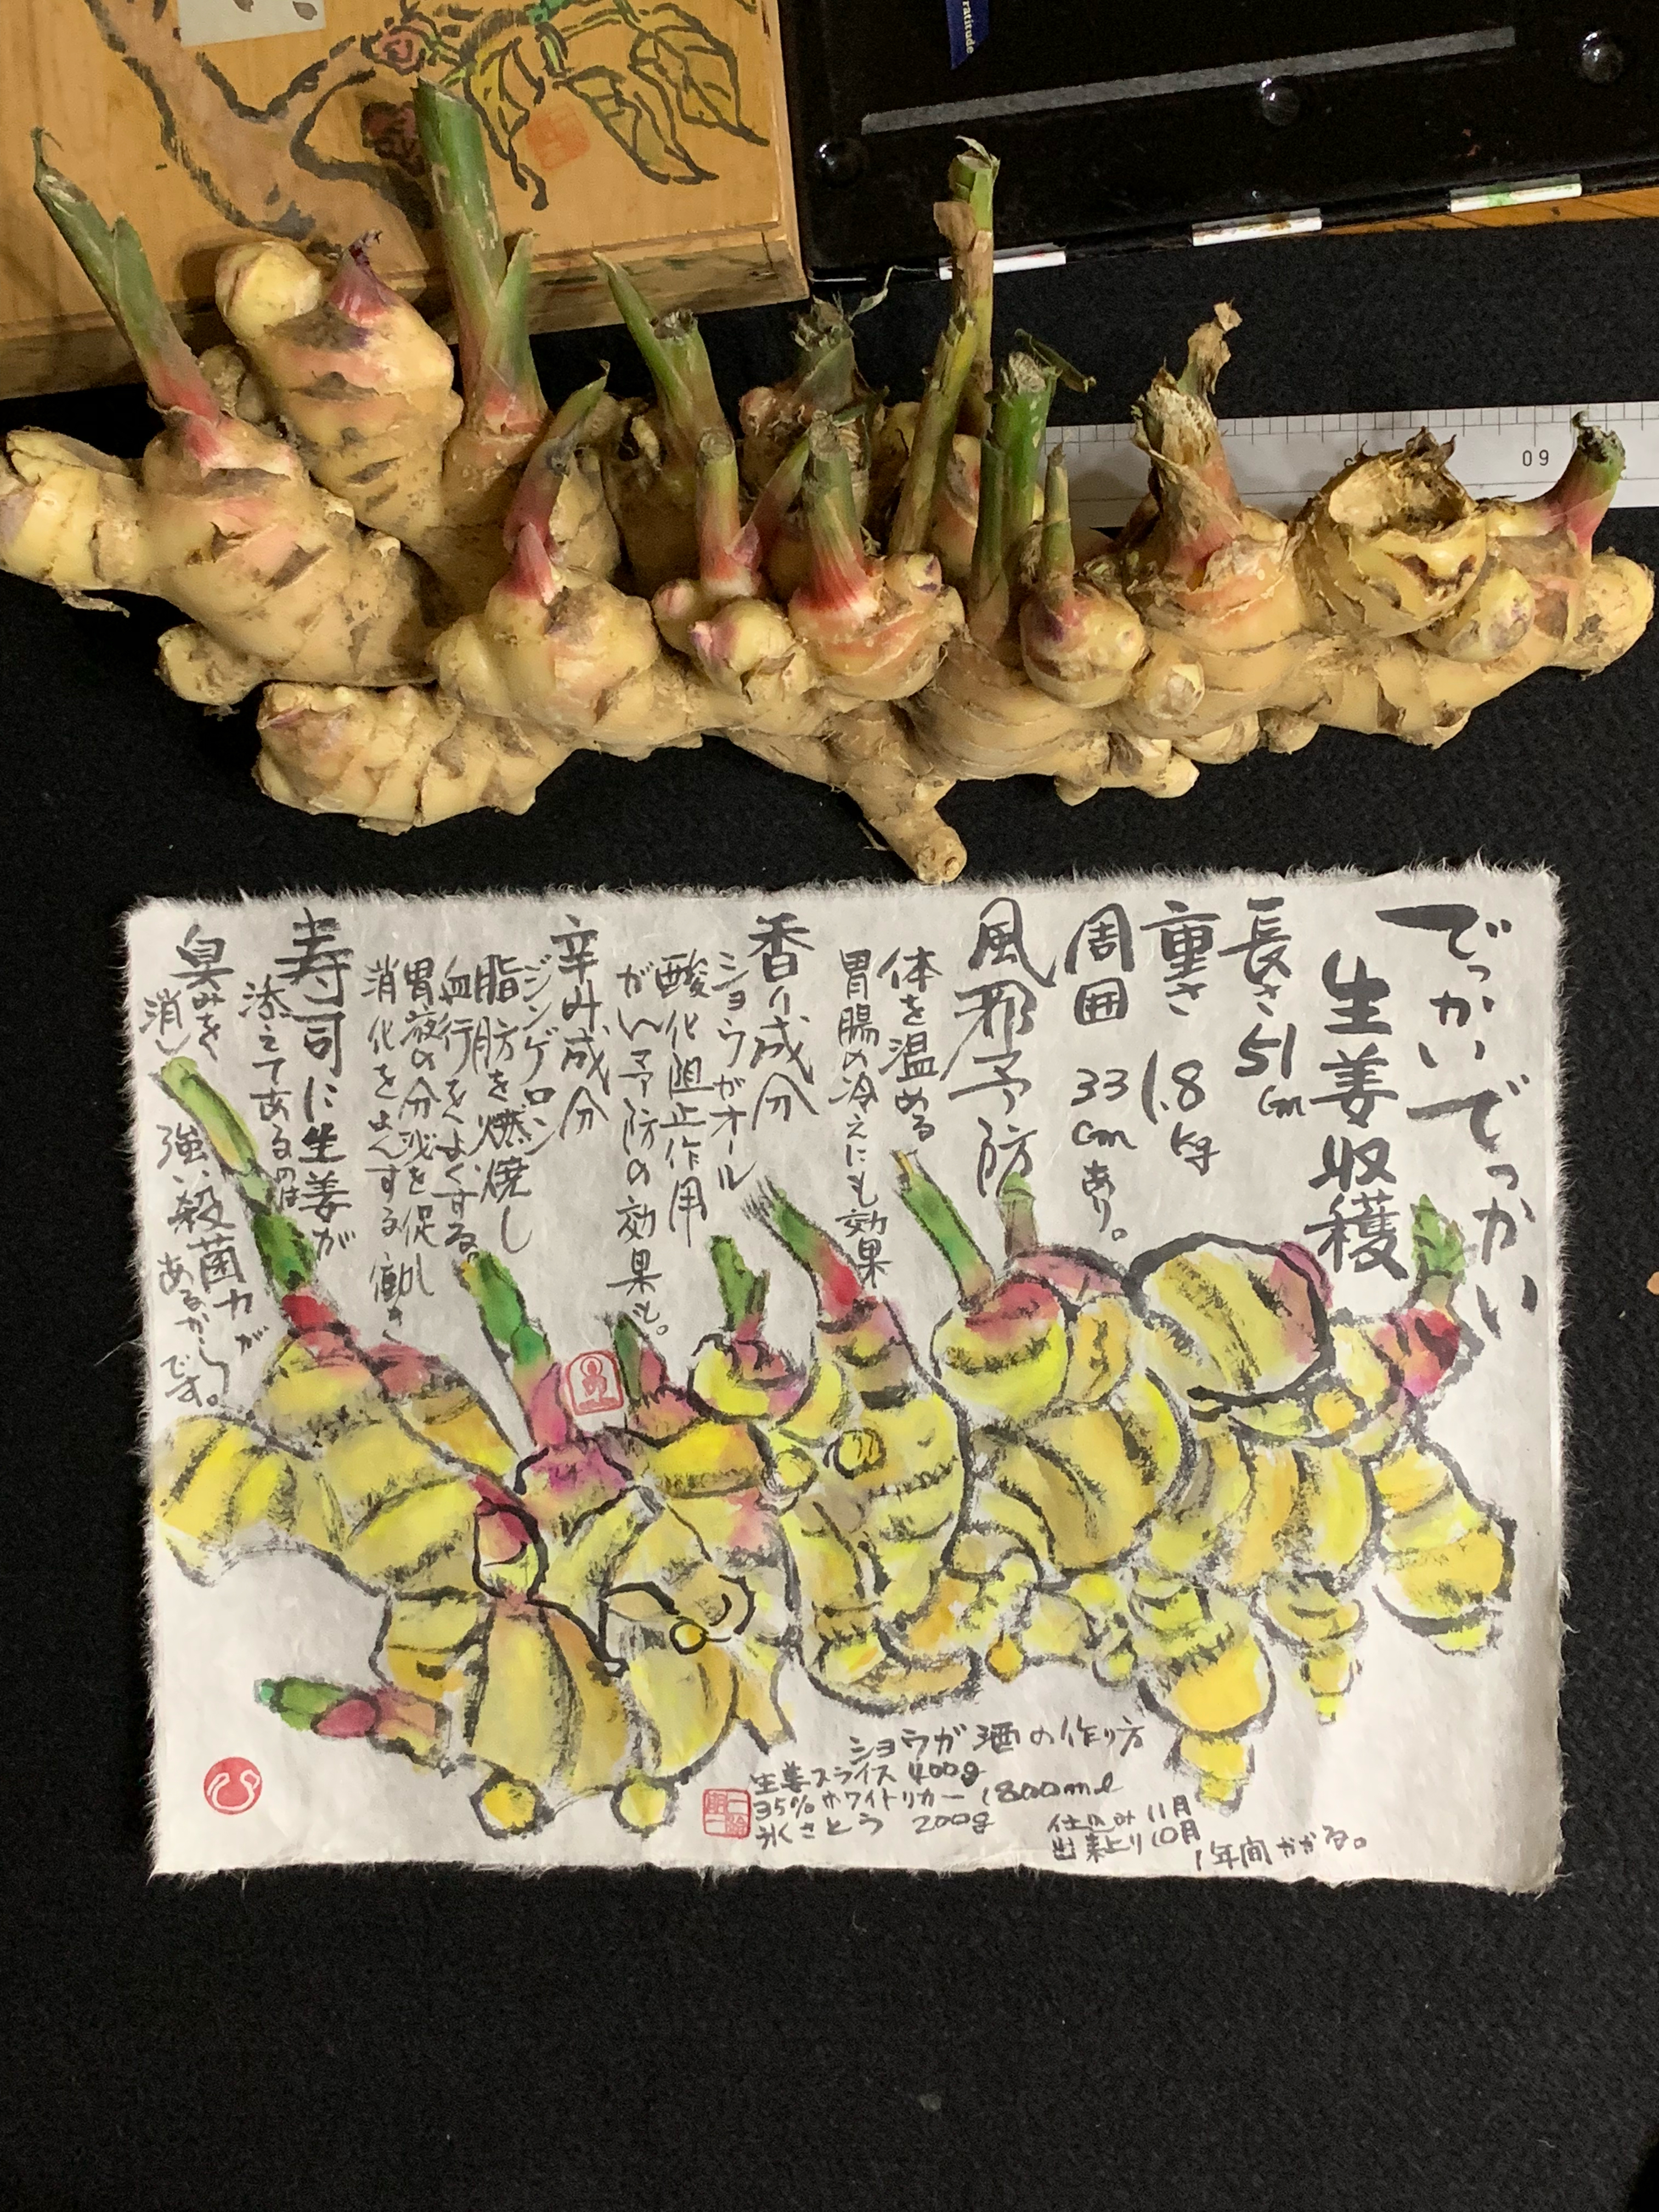 ratitude
09
でっかいでっかい
生姜収穫
長さ 51cm
重さ 1.8kg
周囲 33cmあり。
風邪予防
体を温める
胃腸の冷えにも効果
香り成分
ショウガオール
酸化阻止作用
がん予防の効果も。
辛み成分
ジンゲロン
脂肪を燃焼し
血行をよくする。
胃液の分泌を促し
消化をよくする働き
寿司に生姜が
添えてあるのは
臭みを
消し
強い殺菌力が
あるから
です。
ショウガ酒の作り方
生姜スライス 400g
35%ホワイトリカー 1800ml
氷さとう 200g
仕込み11月
出来上り10月
1年間かかる。